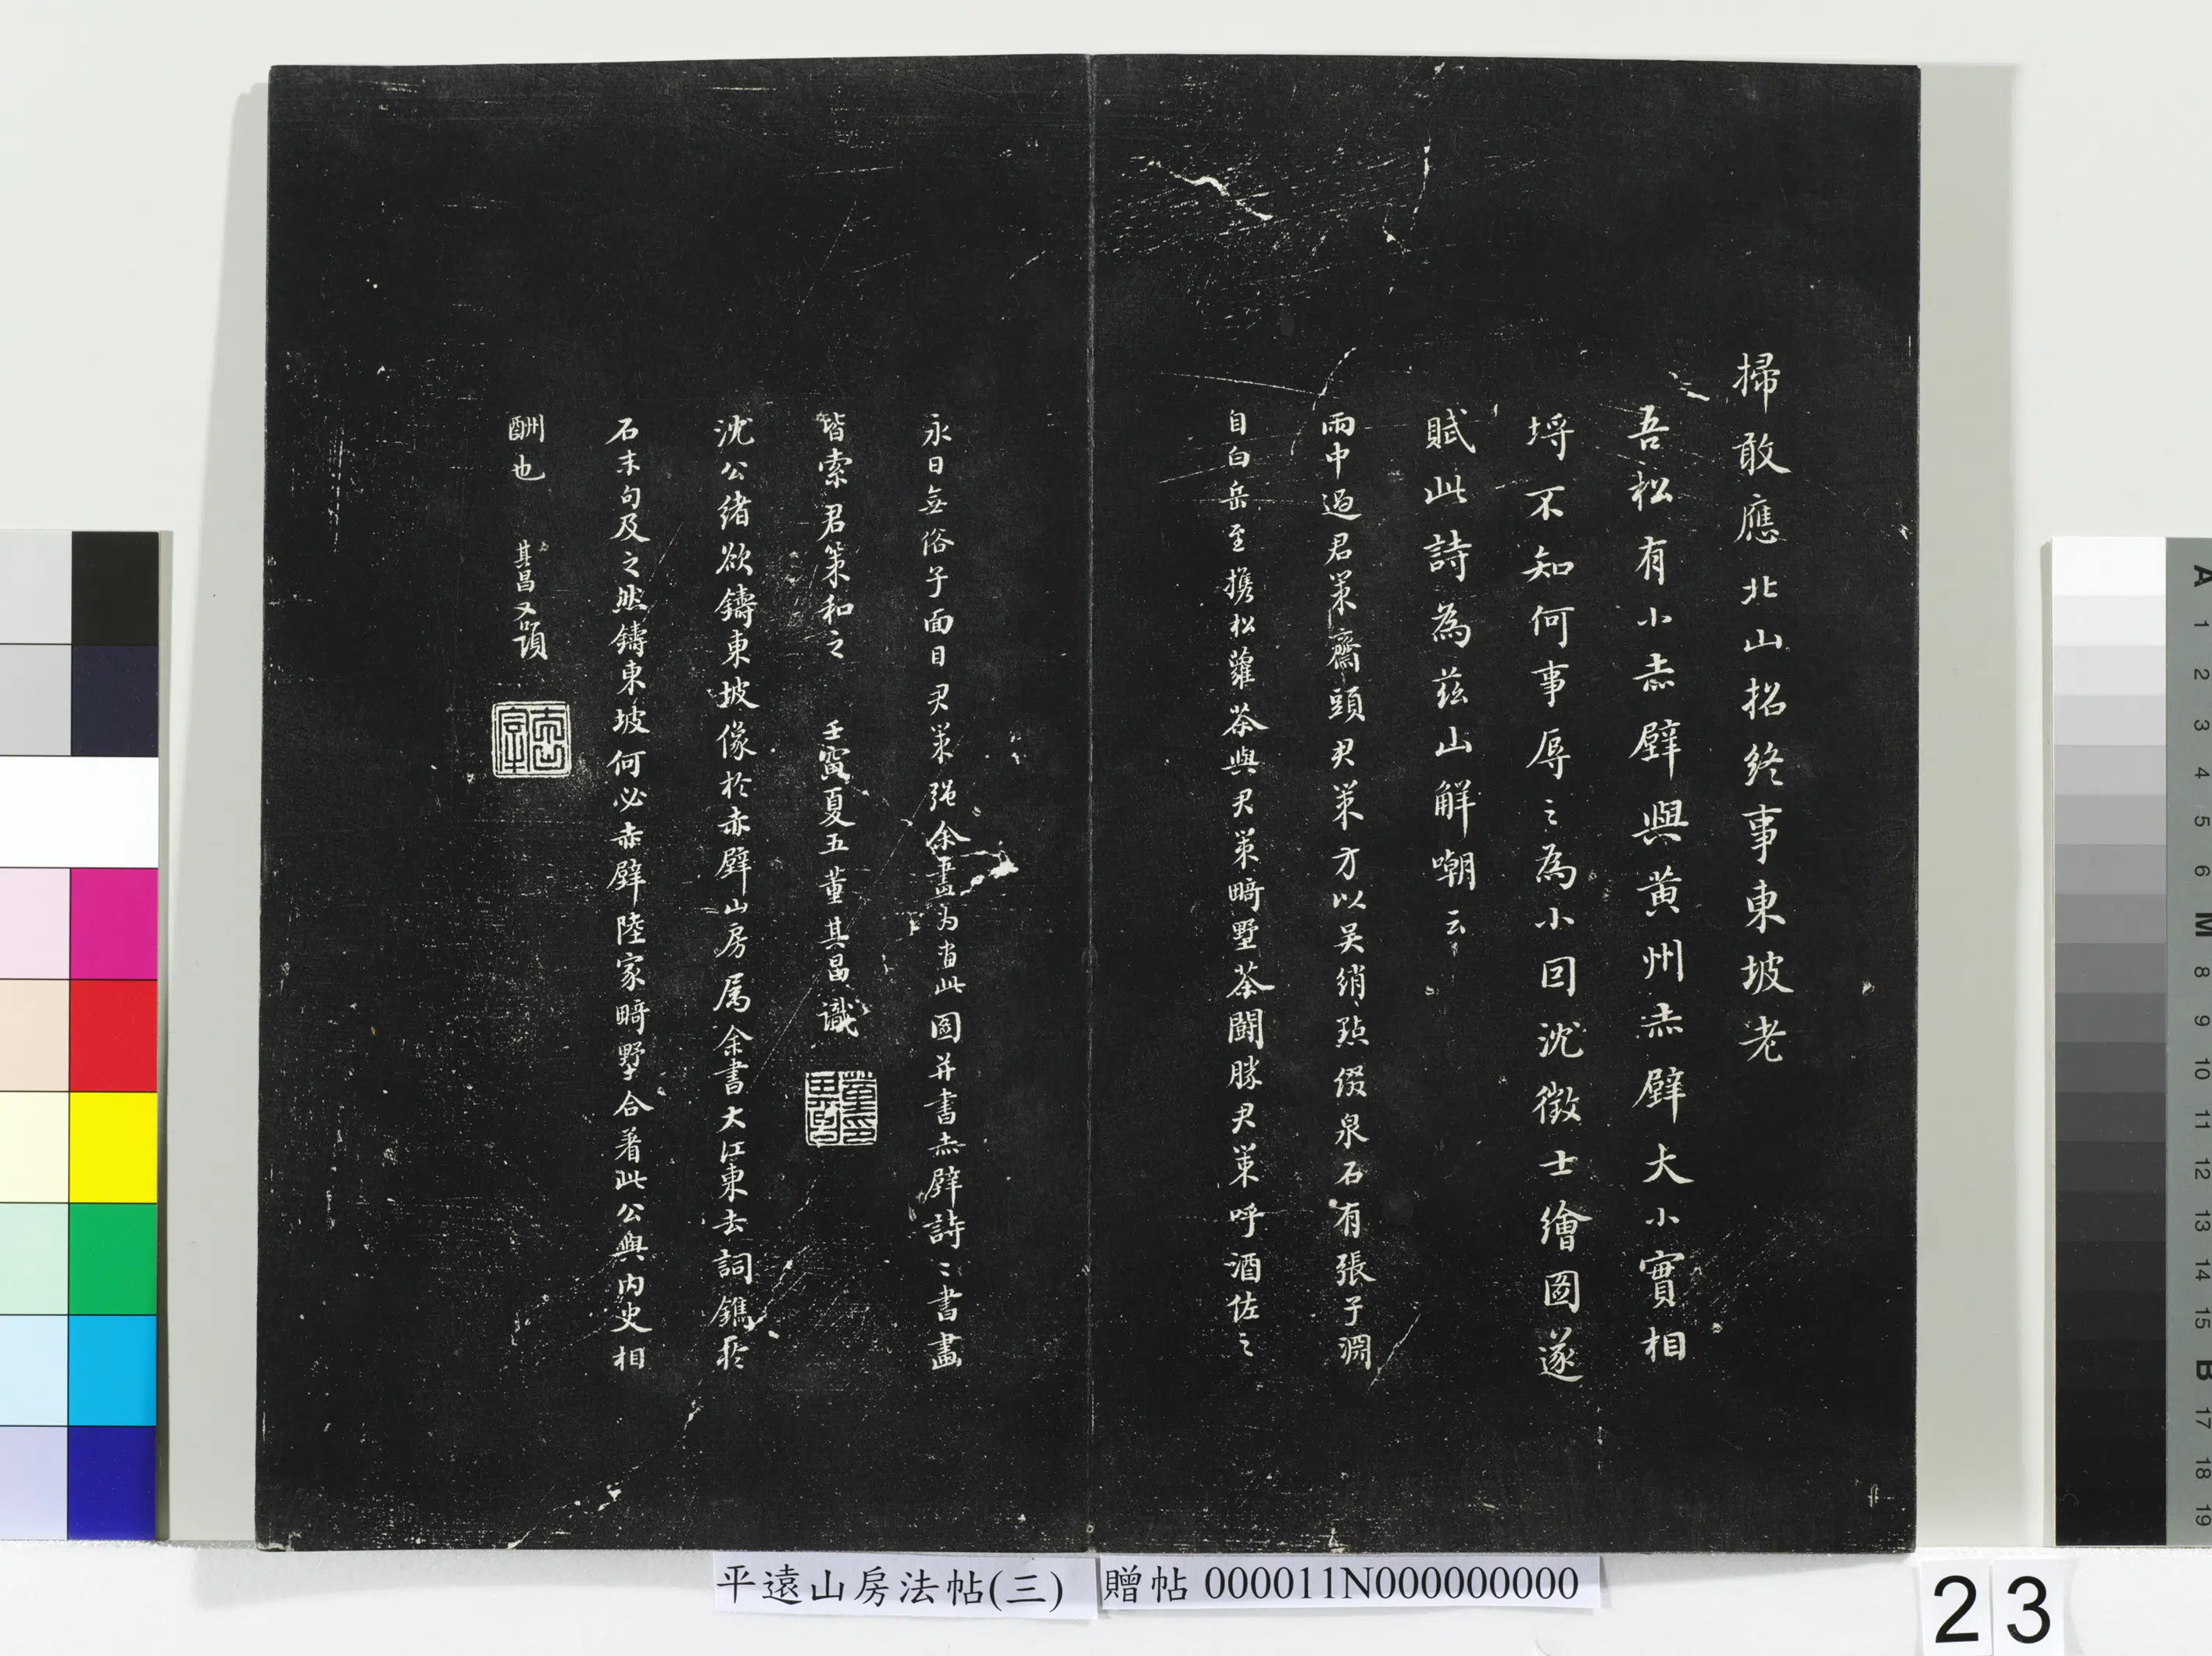 掃敢應北山招終事東坡老
吾松有小赤壁與黃州赤壁大小實相
埒不知何事辱之為小回沈徵士繪圖遂
賦此詩為茲山解嘲云
雨中過君策齋頭君策方以吴綃點綴泉石有張子淵
自白岳至攜松蘿茶與君策畸墅茶鬭勝君策呼酒佐之
永日無俗子面目君策强余畫为啚此圖并書赤壁詩〻書畫
皆索君策和之 壬寅夏五董其昌識
沈公緒欲鑄東坡像於赤壁山房属余書大江東去詞鐫於
石末句及之然鑄東坡何必赤壁陸家畸墅合著此公與内史相
酬也 其昌又題
平遠山房法帖(三)
贈帖 000011N000000000
23
A
1
2
3
4
5
6
M
8
9
10
11
12
13
14
15
B
17
18
19